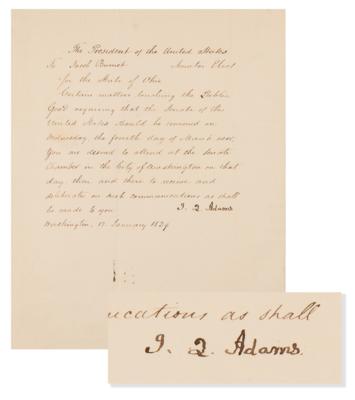 The President of the United States
To Jacob Burnet Senator Elect
for the State of Ohio
Certain matters touching the Public
Good requiring that the Senate of the
United States should be convened on
Wednesday, the fourth day of March next,
You are desired to attend at the Senate
Chamber in the City of Washington on that
day, then and there to receive and
deliberate on such communications as shall
be made to you. J. Q. Adams.
Washington, 17. January 1829
ications as shall
J. Q. Adams.